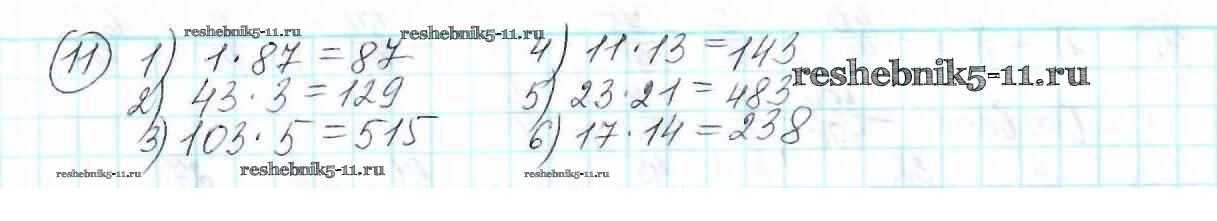 reshebnik5-11.ru
reshebnik5-11.ru
11 1) 1·87=87
4) 11·13=143
reshebnik5-11.ru
2) 43·3=129
5) 23·21=483
3) 103·5=515
6) 17·14=238
reshebnik5-11.ru
reshebnik5-11.ru
reshebnik5-11.ru